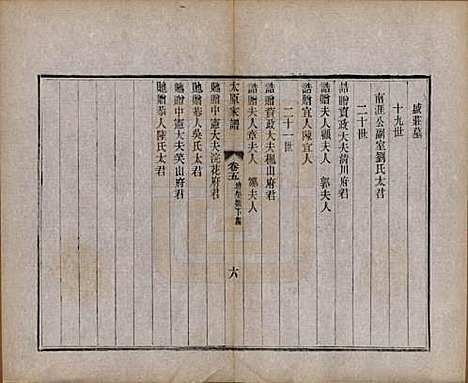 城莊墓
十九世
南涯公副室劉氏太君
二十世
誥贈資政大夫蒔川府君
誥贈夫人頋夫人 郭夫人
誥贈宜人陳宜人
二十一世
誥贈資政大夫楓山府君
誥贈夫人章夫人 夫人
太原家譜 卷五 六
貤贈中憲大夫浣花府君
貤贈恭人吳氏太君
貤贈中憲大夫笑山府君
貤贈恭人陳氏太君